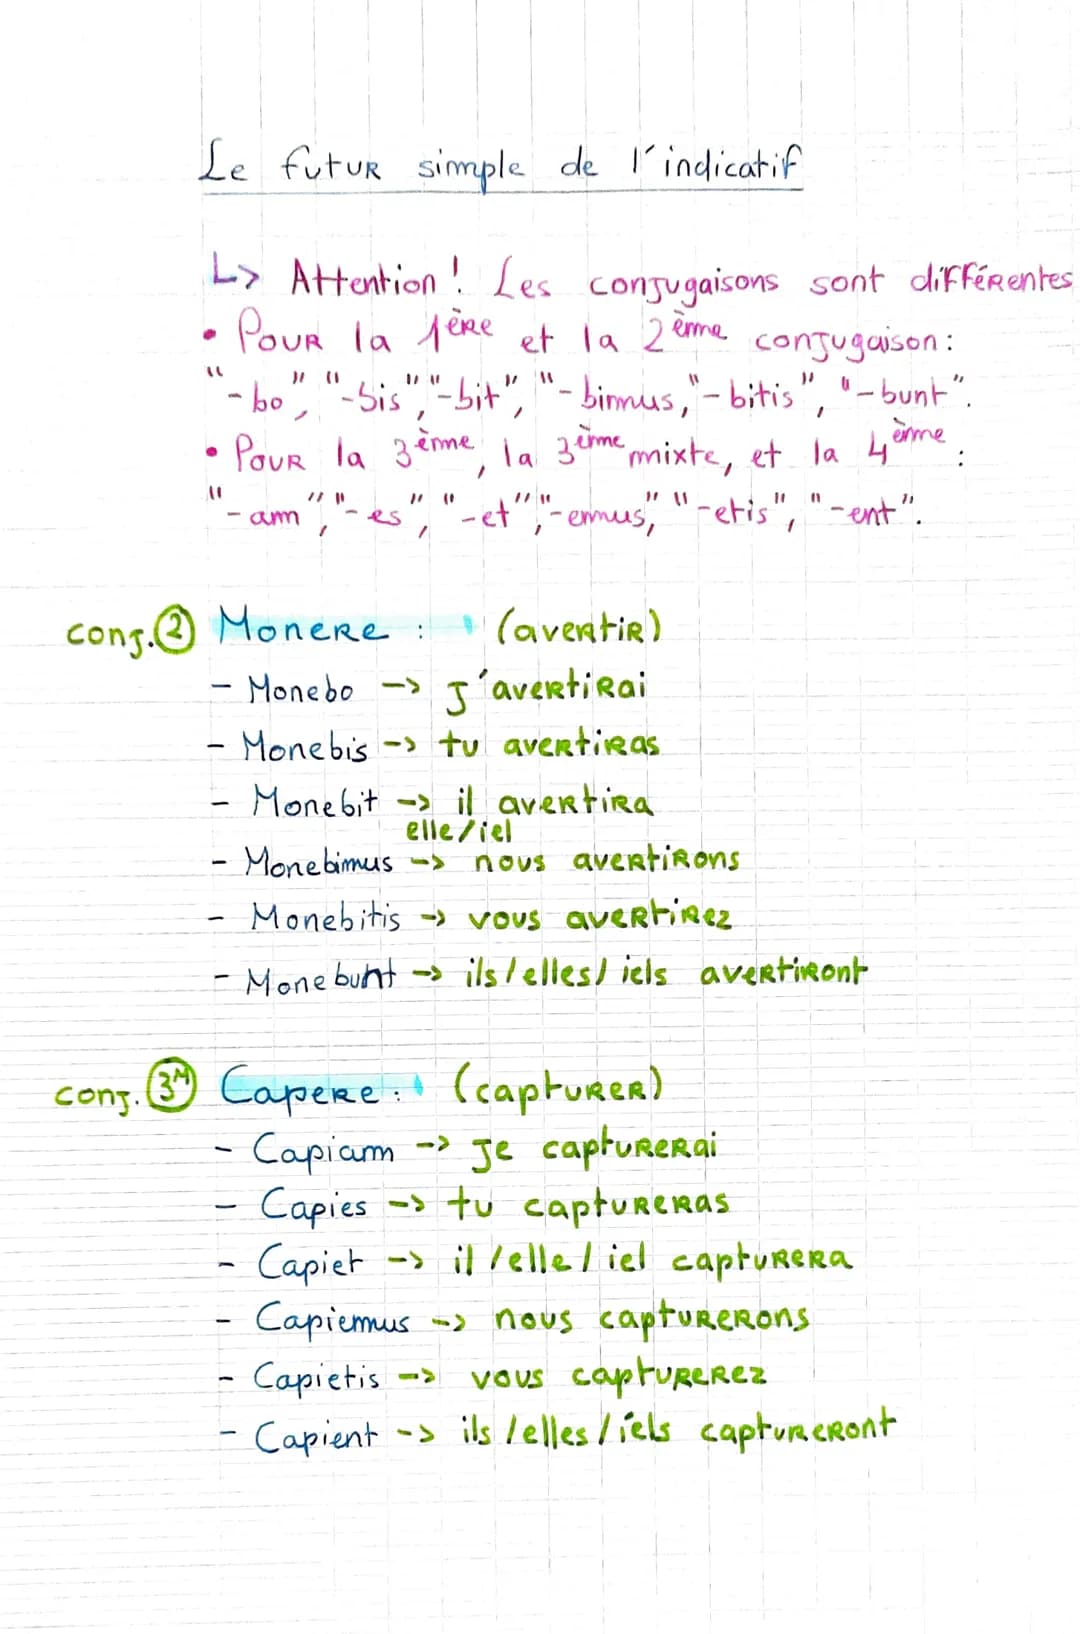 Le futur simple de l'indicatif
L> Attention ! Les conjugaisons sont différentes
• Pour la 1ère et la 2ème conjugaison :
"-bo", "-bis", "-bit", "-bimus, "-bitis", "-bunt".
• Pour la 3ème, la 3ème mixte, et la 4ème :
"-am", "-es", "-et", "-emus", "-etis", "-ent".
conj. ② Monere : (avertir)
- Monebo -> j'avertirai
- Monebis -> tu avertiras
- Monebit -> il avertira
elle/iel
- Monebimus -> nous avertirons
- Monebitis -> vous avertirez
- Monebunt -> ils/elles/iels avertiront
conj. 3M Capere : (capturer)
- Capiam -> je capturerai
- Capies -> tu captureras
- Capiet -> il/elle/iel capturera
- Capiemus -> nous capturerons
- Capietis -> vous capturerez
- Capient -> ils/elles/iels captureront